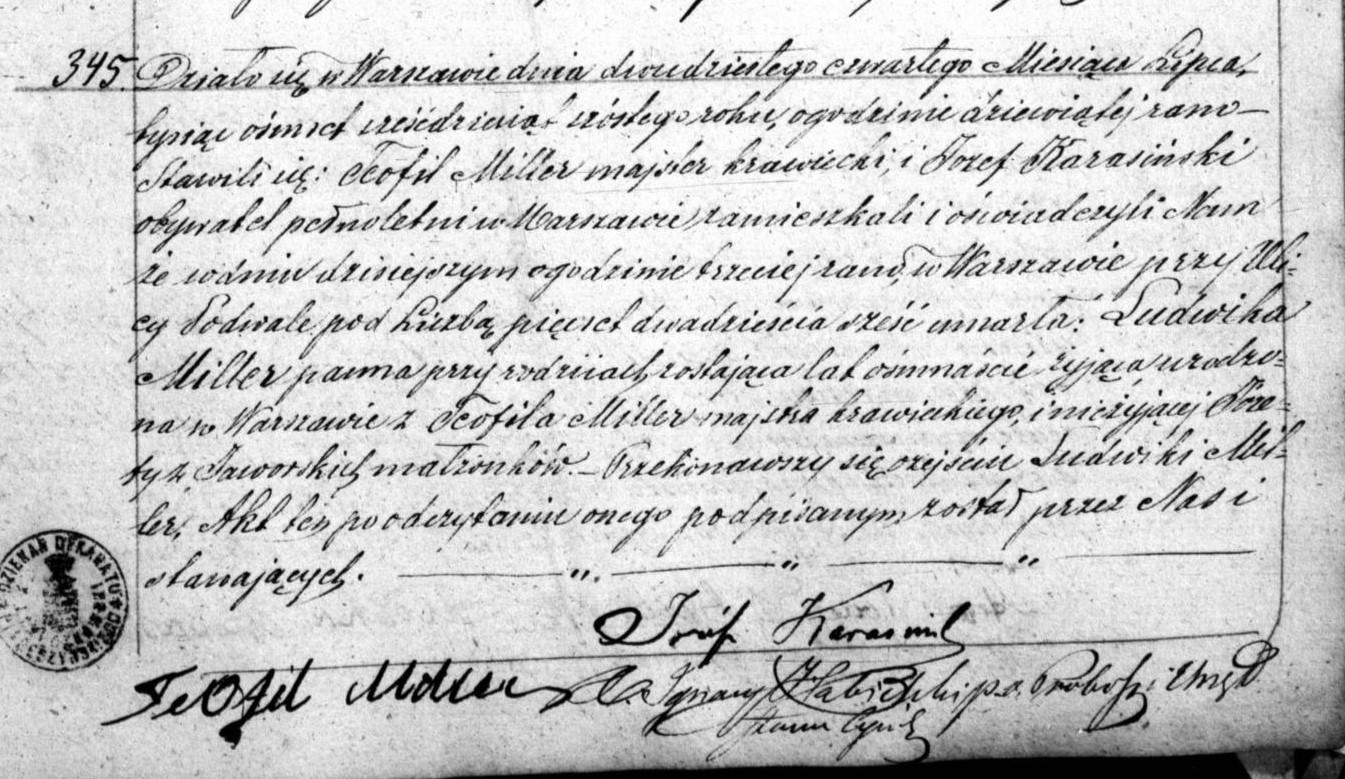 345. Działo się w Warszawie dnia dwudziestego czwartego Miesiąca Lipca,
tysiąc ośmset sześćdziesiąt szóstego roku, o godzinie dziewiątej rano –
Stawili się: Teofil Miller majster krawiecki, i Józef Karasiński
obywatel pełnoletni w Warszawie zamieszkali i oświadczyli Nam
że w dniu dzisiejszym o godzinie trzeciej rano, w Warszawie przy Uli-
cy Podwale pod Liczbą pięćset dwadzieścia sześć umarła: Ludwika
Miller panna przy rodzicach zostająca lat ośmnaście żyjąca urodzo-
na w Warszawie z Teofila Miller majstra krawieckiego, i nieżyjącej Józe-
fy z Jaworskich małżonków. – Przekonawszy się o zejściu Ludwiki Mil-
ler, Akt ten po odczytaniu onego podpisanym został przez Nas i
stawających.
Józef Karasiń
Teofil Miller
X. Ignacy p. o. Proboszcz i Urzęd
Stanu Cyw
DZIEKAN DEKANATU